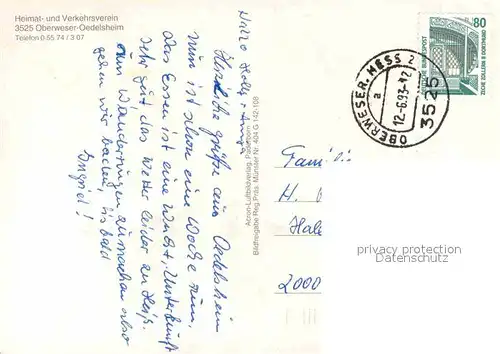 Heimat- und Verkehrsverein
3525 Oberweser-Oedelsheim
Telefon 0 55 74 / 3 07
Hallo Holly +
Herzliche Grüße aus Oedelsheim
nun ist schon eine Woche rum.
Das Essen ist eine Wucht, Unterkunft
sehr gut das Wetter leider zu heiß.
um Wanderungen zu machen also
gehen wir baden, bis bald
Ingrid!
Acron-Luftbildverlag, Paderborn
Bildfreigabe Reg.Präs. Münster Nr. 404 G 142-108
80
DEUTSCHE BUNDESPOST
ZECHE ZOLLERN II DORTMUND
OBERWESER, HESS 2
a
12.-6.93-12
OBERWESER
3525
Fami
H.
Hale
2000
privacy protection
Datenschutz